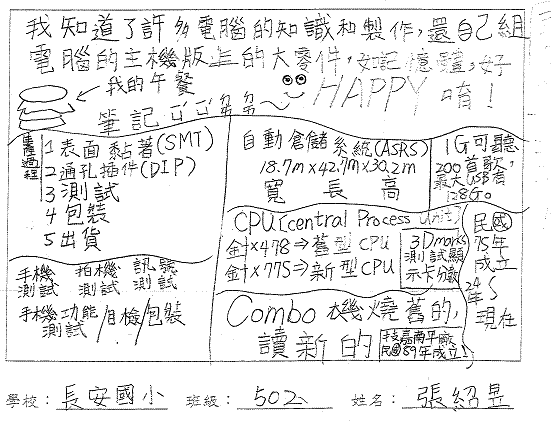 我知道了許多電腦的知識和製作,還自己組
電腦的主機版上的大零件,如記憶體,好
HAPPY唷!
我的午餐
筆記ㄉㄉㄉㄉ
生產過程
1 表面黏著(SMT)
2 通孔插件(DIP)
3 測試
4 包裝
5 出貨
自動倉儲系統(ASRS)
18.7m×42.7m×30.2m
寬 長 高
1G可聽
200首歌,
最大USB有
128G。
CPU(central Process Unit)
針×478⇒舊型CPU
針×775⇒新型CPU
3Dmarks
測試顯
示卡分數
民國
75年
成立
24年
現在
手機測試 拍機測試 訊號測試
手機功能測試/目檢/包裝
Combo機燒舊的,
讀新的
技嘉南平廠
民國89年成立!
學校: 長安國小 班級: 502 姓名: 張紹昱